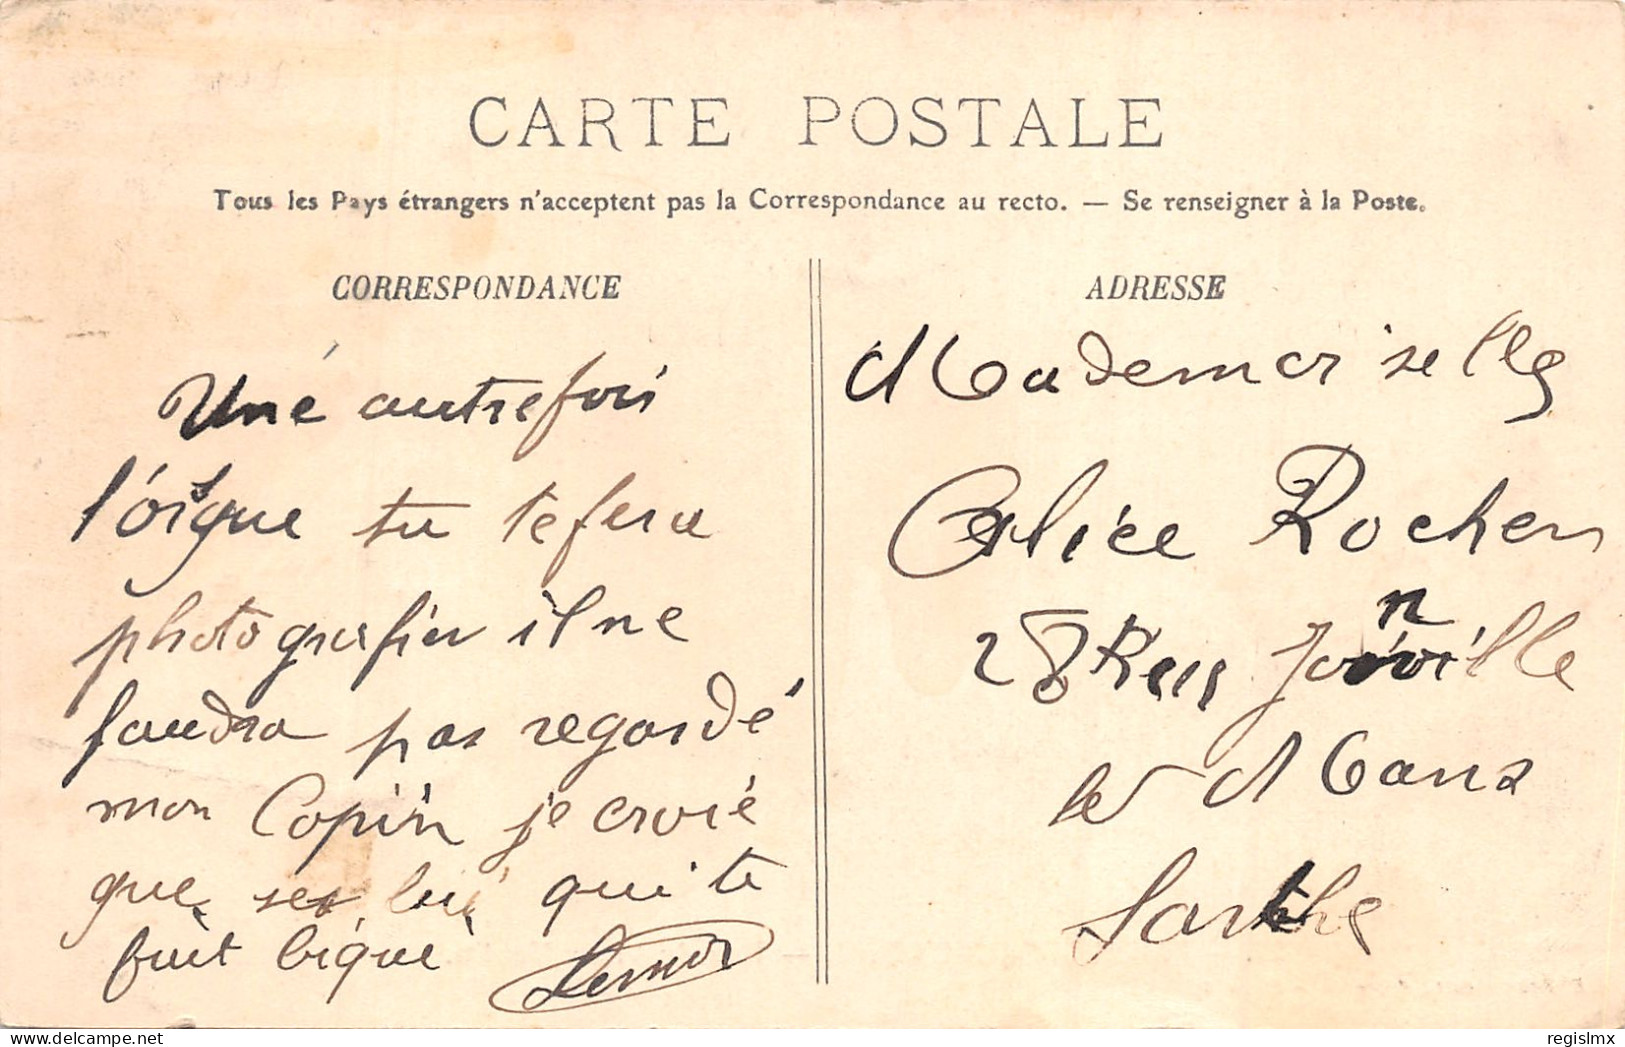 CARTE POSTALE
Tous les Pays étrangers n'acceptent pas la Correspondance au recto. — Se renseigner à la Poste.
CORRESPONDANCE
Une autrefois
l'orsque tu tefera
photografier ilne
faudra pas regardé
mon Copin je croié
que ses lui qui te
fait
ADRESSE
Mademoiselle
Alice Rocher
28 Rue Joinville
le Mans
Sarthe
regislmx